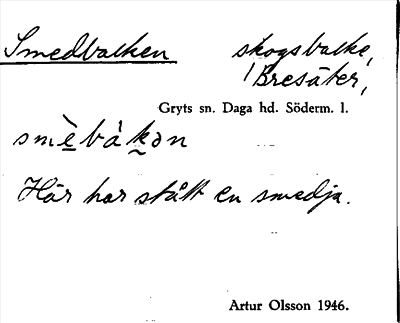 Smedbacken skogsbacke,
Bresäter,
Gryts sn. Daga hd. Söderm. l.
smè̱bàk̰ən
Här har stått en smedja.
Artur Olsson 1946.